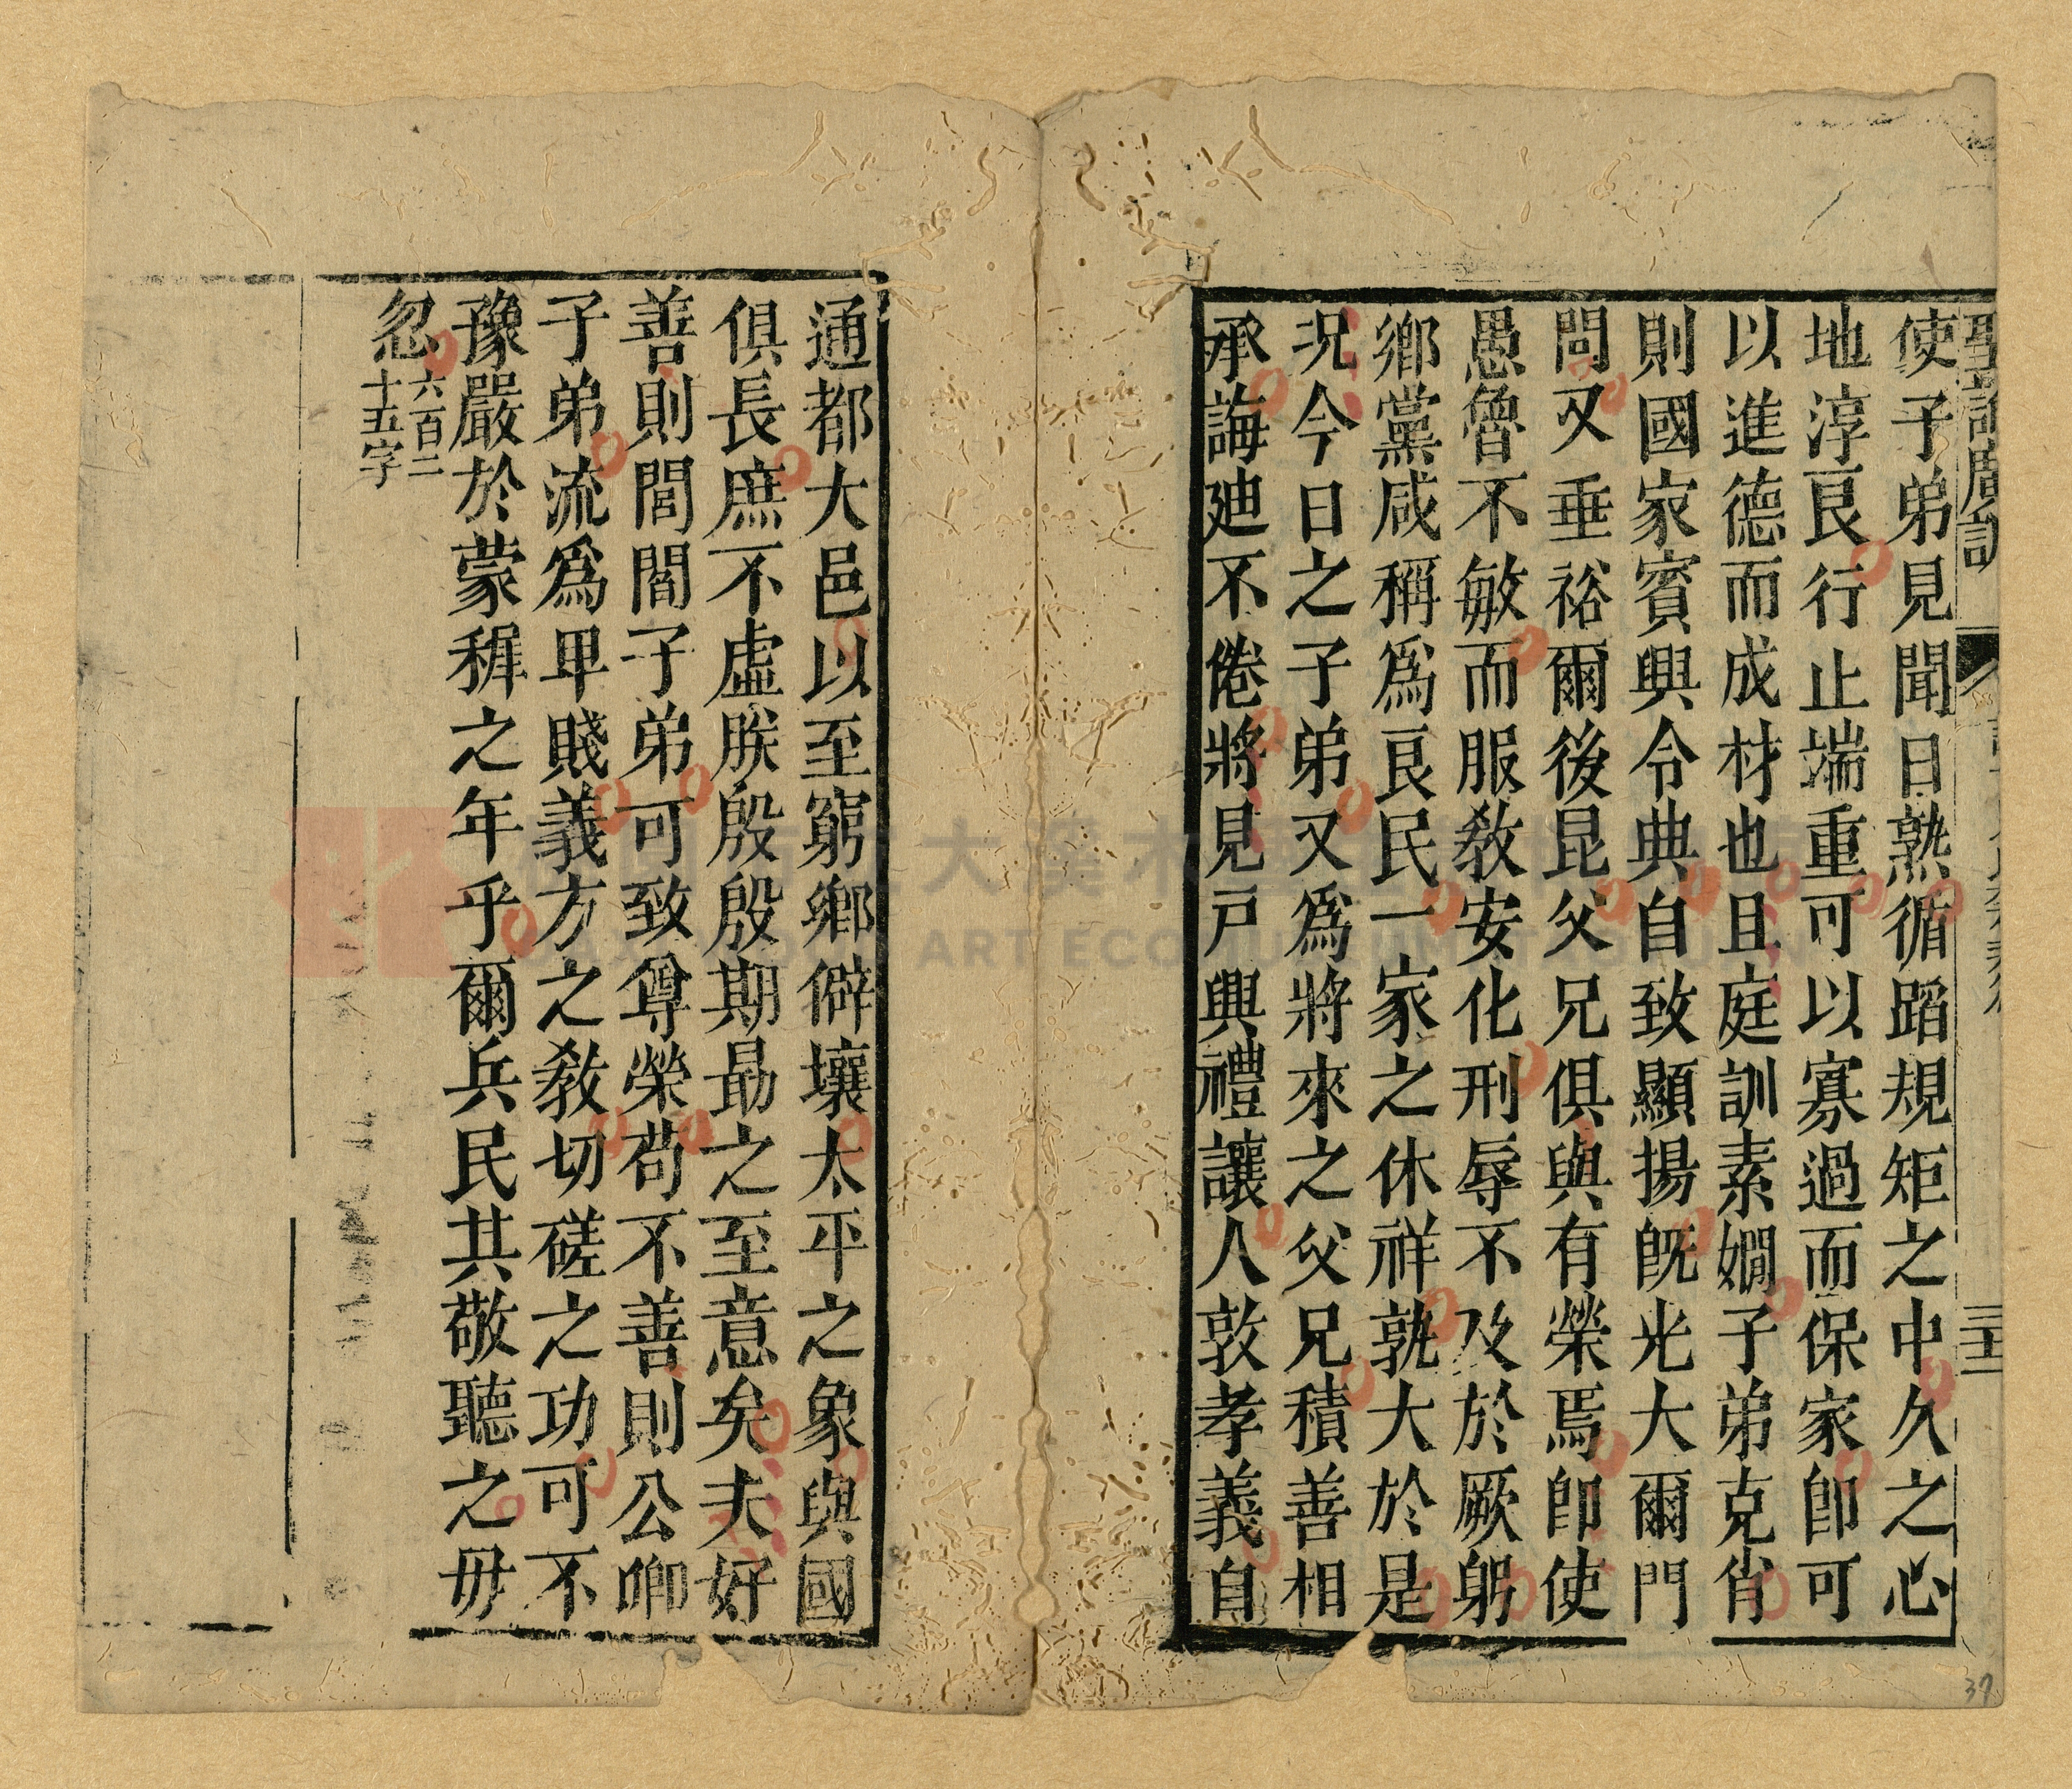 聖諭廣訓
三十三
使子弟見聞日熟循蹈規矩之中久之心
地淳良行止端重可以寡過而保家卽可
以進德而成材也且庭訓素嫺子弟克肖
則國家賓興令典自致顯揚旣光大爾門
閭又垂裕爾後昆父兄俱與有榮焉卽使
愚魯不敏而服敎安化刑辱不及於厥躬
鄉黨咸稱爲良民一家之休祥孰大於是
况今日之子弟又爲將來之父兄積善相
承誨廸不倦將見戸興禮讓人敦孝義自
通都大邑以至窮鄉僻壤太平之象與國
俱長庶不虛朕殷殷期勗之至意矣夫好
善則閭閻子弟可致尊榮苟不善則公卿
子弟流爲卑賤義方之敎切磋之功可不
豫嚴於蒙穉之年乎爾兵民其敬聽之毋
忽
六百二
十五字
37